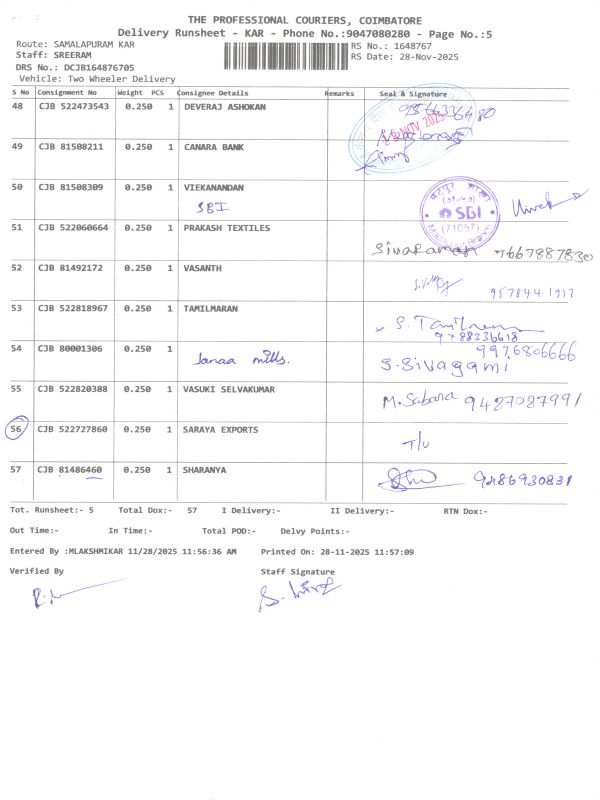 THE PROFESSIONAL COURIERS, COIMBATORE
Delivery Runsheet - KAR - Phone No.:9047080280 - Page No.:5
Route: SAMALAPURAM KAR RS No.: 1648767
Staff: SREERAM RS Date: 28-Nov-2025
DRS No.: DCJB164876705
Vehicle: Two Wheeler Delivery
S No Consignment No Weight PCS Consignee Details Remarks Seal & Signature
48 CJB 522473543 0.250 1 DEVERAJ ASHOKAN
49 CJB 81508211 0.250 1 CANARA BANK
50 CJB 81508309 0.250 1 VIEKANANDAN
SBI
SBI
(71057)
51 CJB 522060664 0.250 1 PRAKASH TEXTILES
Sivaraman 7667887830
52 CJB 81492172 0.250 1 VASANTH
9578441917
53 CJB 522818967 0.250 1 TAMILMARAN
9788336618
54 CJB 80001306 0.250 1 Janaa mills. 9976806666
S.Sivagami
55 CJB 522820388 0.250 1 VASUKI SELVAKUMAR M. Sabana 9487087991
56 CJB 522727860 0.250 1 SARAYA EXPORTS
T/U
57 CJB 81486460 0.250 1 SHARANYA 9486930831
Tot. Runsheet:- 5 Total Dox:- 57 I Delivery:- II Delivery:- RTN Dox:-
Out Time:- In Time:- Total POD:- Delvy Points:-
Entered By :MLAKSHMIKAR 11/28/2025 11:56:36 AM Printed On: 28-11-2025 11:57:09
Verified By Staff Signature